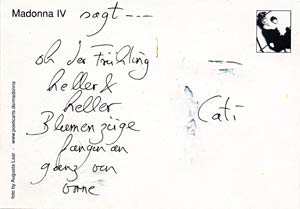 Madonna IV sagt ---
oh der Frühling
heller &
heller
Blumenzüge
fangen an
ganz von
vorne
Cati
www.postcarts.de/madonna
foto by Auguste Isar